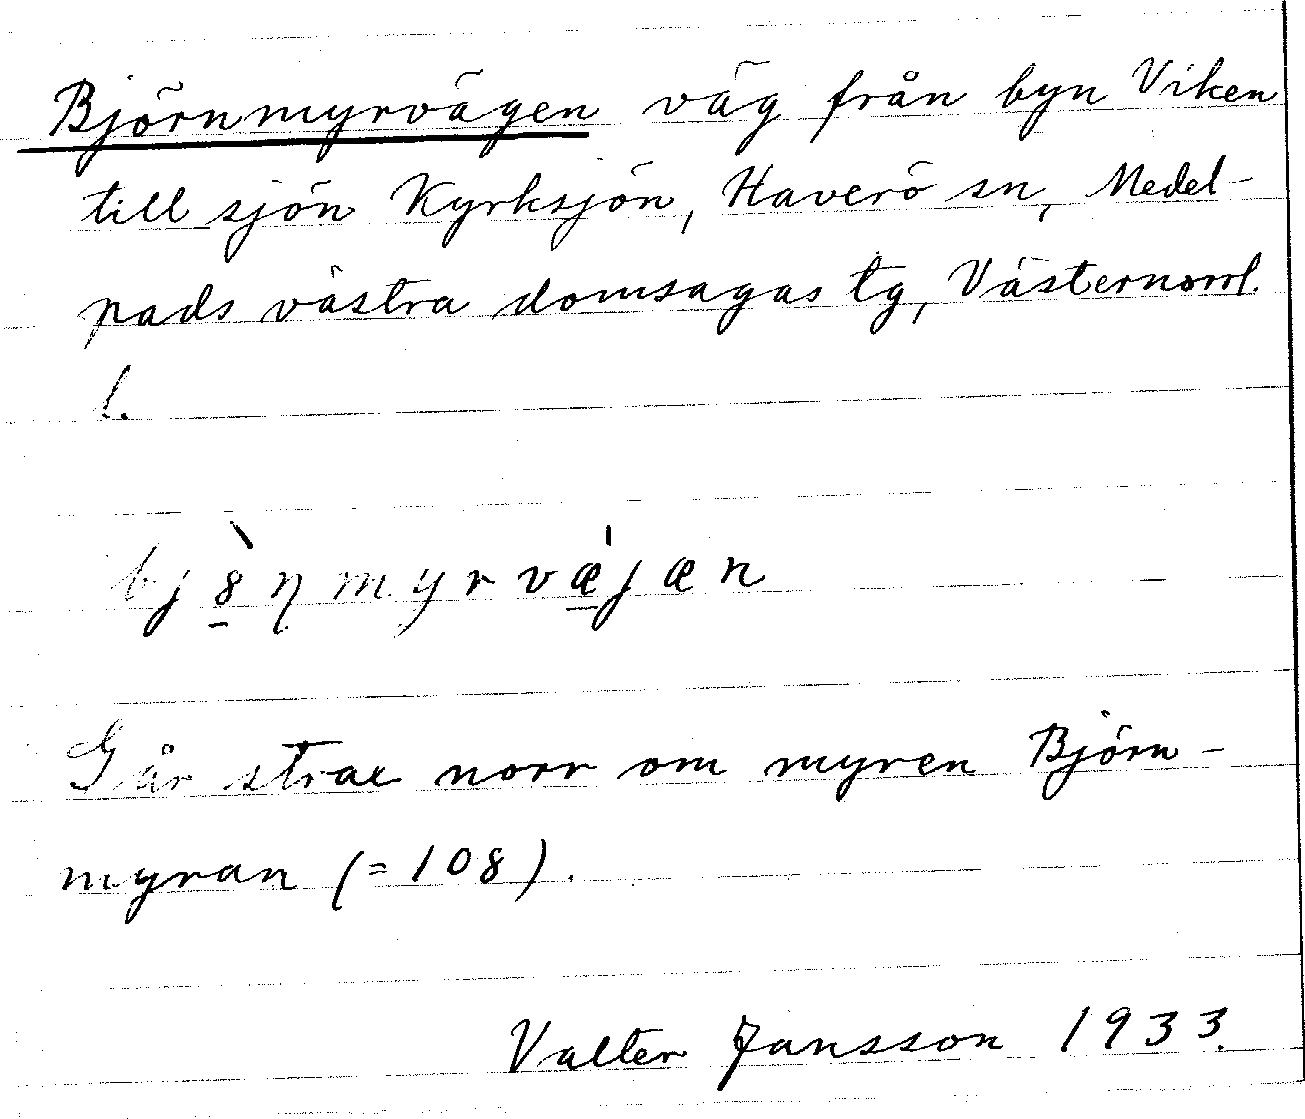 Björnmyrvägen väg från byn Viken
till sjön Kyrksjön, Haverö sn, Medel-
pads västra domsagas tg, Västernorrl.
l.
bj8̠̀ηmyrvæ̠̍jæn
Går strax norr om myren Björn-
myran (=108).
Valter Jansson 1933.